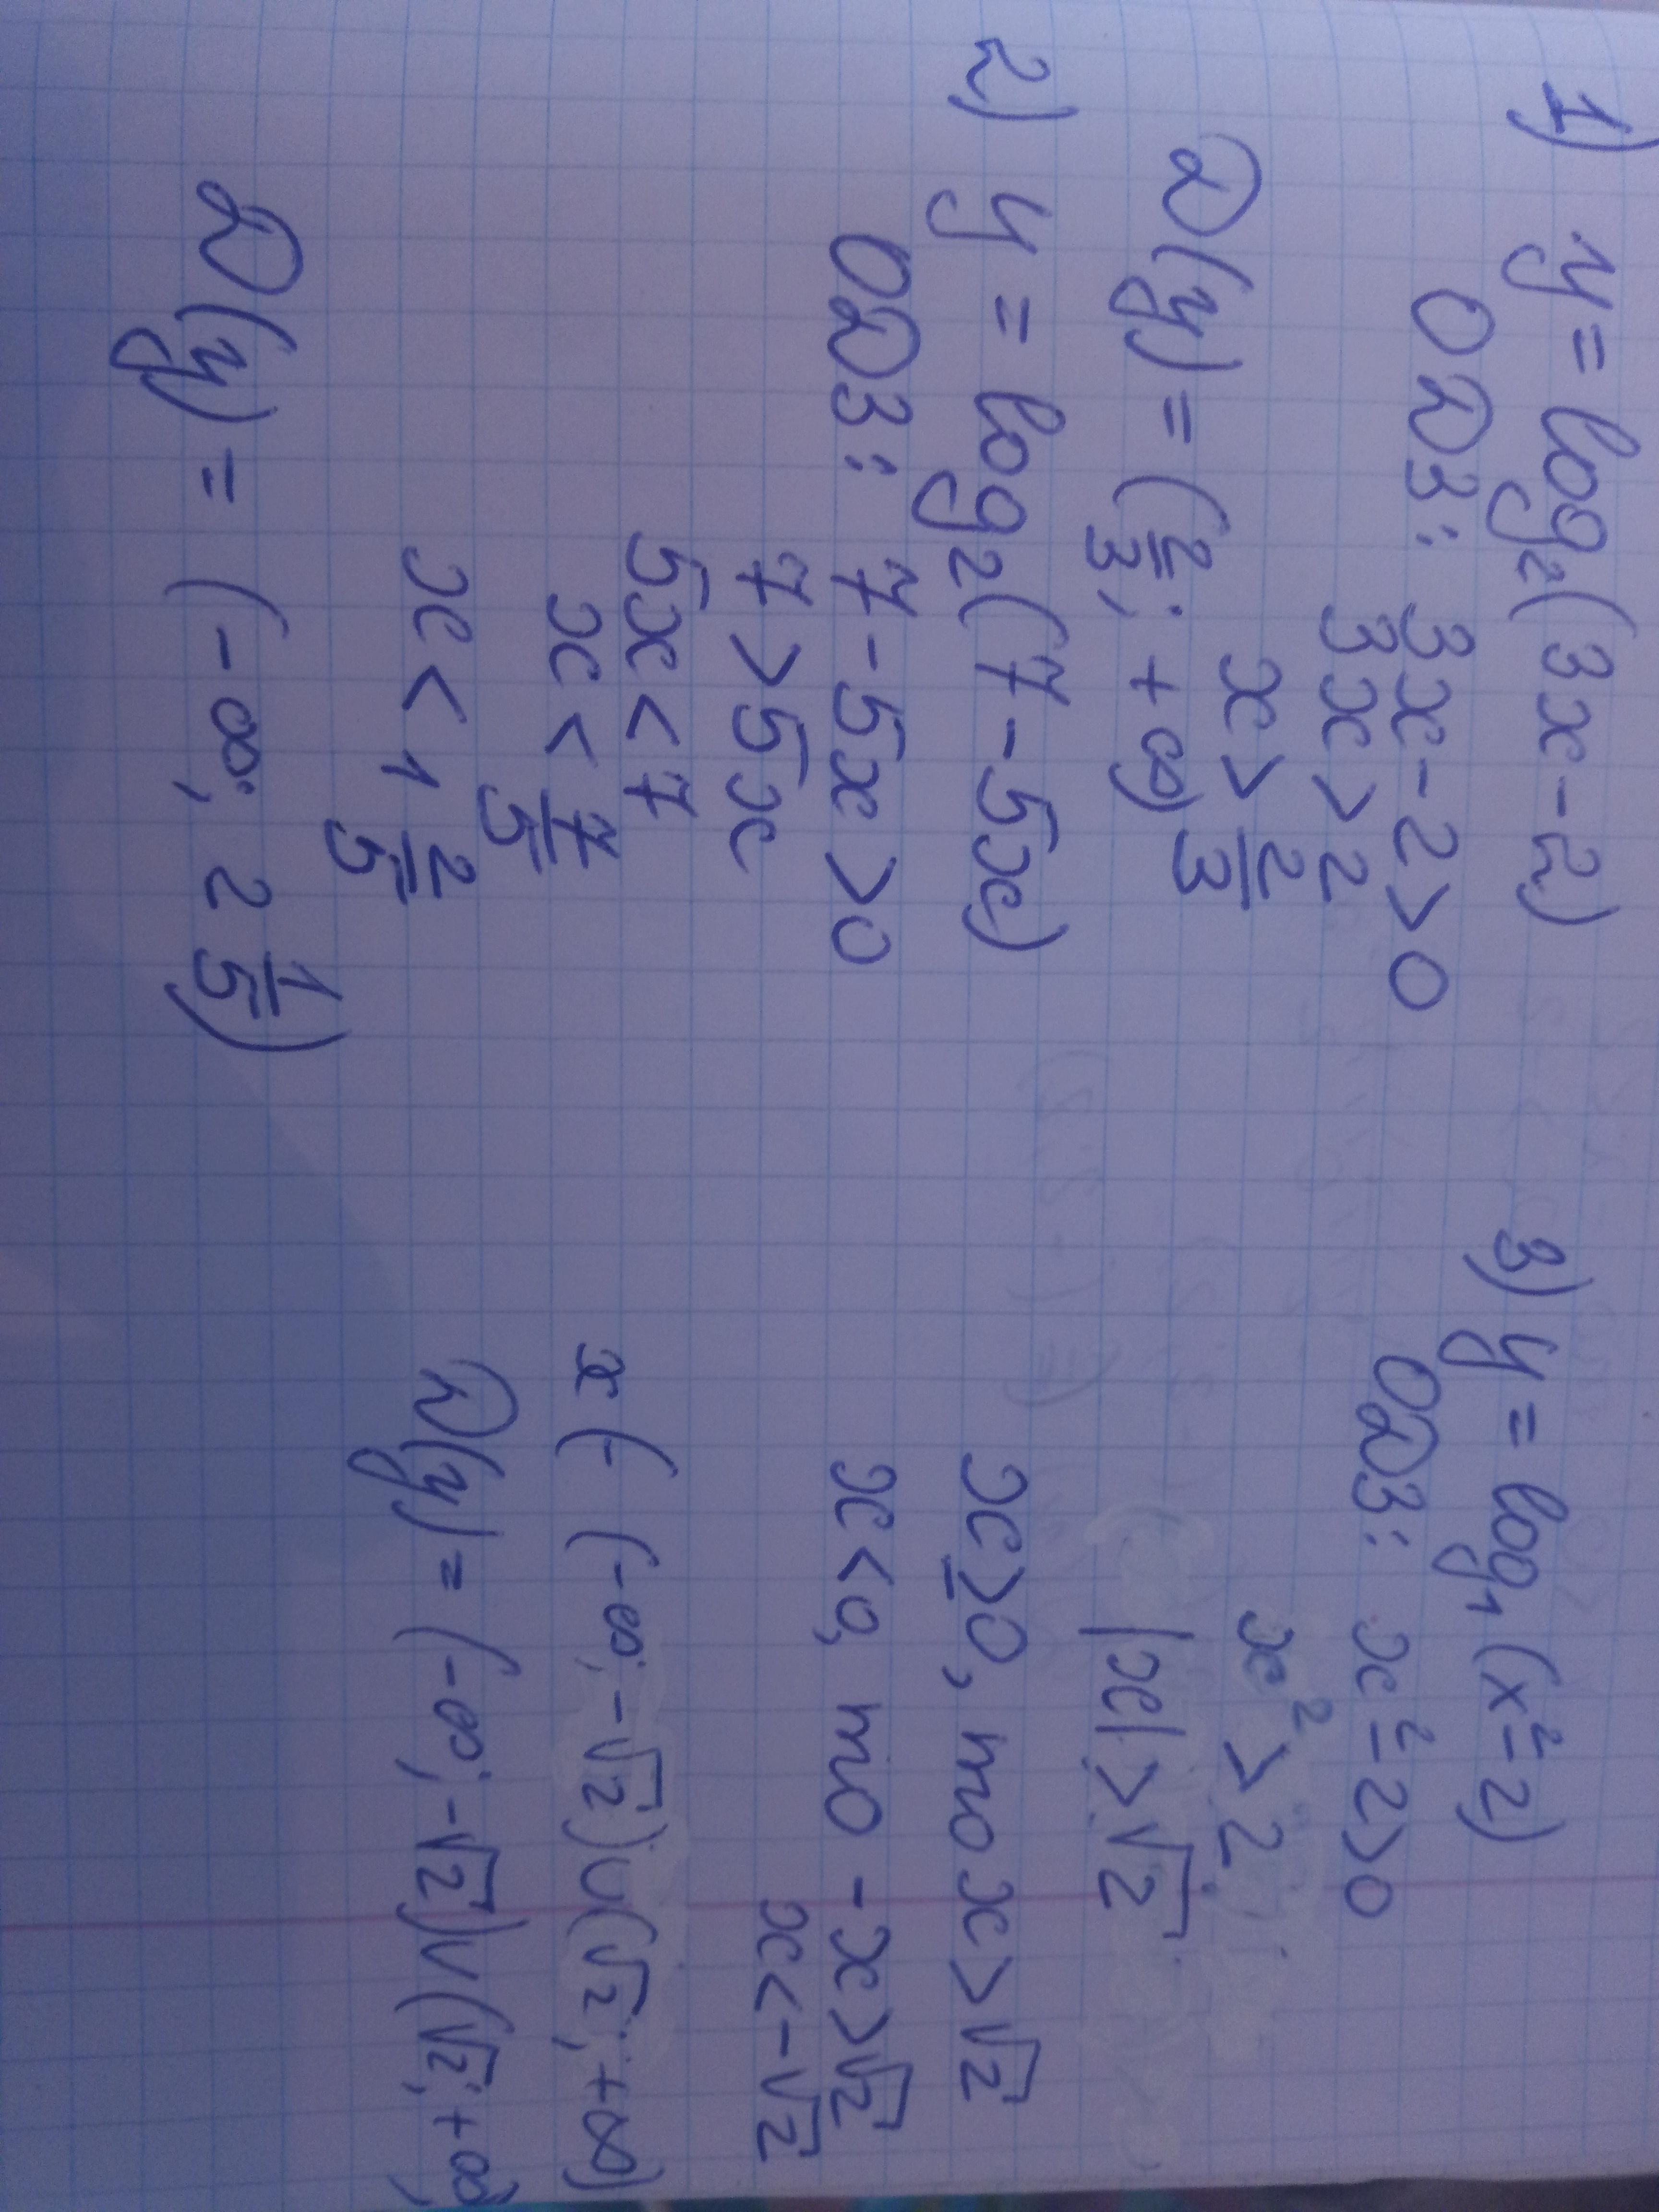 1) y = log₂(3x-2)
ОДЗ: 3x-2>0
3x>2
x> 2/3
D(y) = (2/3; +∞)
2) y = log₂(7-5x)
ОДЗ: 7-5x>0
7>5x
5x<7
x< 7/5
x<1 2/5
D(y) = (-∞; 2 1/5)
3) y = log₁(x²-2)
ОДЗ: x²-2>0
x²>2
|x|>√2
x≥0, то x>√2
x<0, то -x>√2
x<-√2
x (- (-∞; -√2)∪(√2; +∞)
D(y) = (-∞; -√2)∪(√2; +∞)